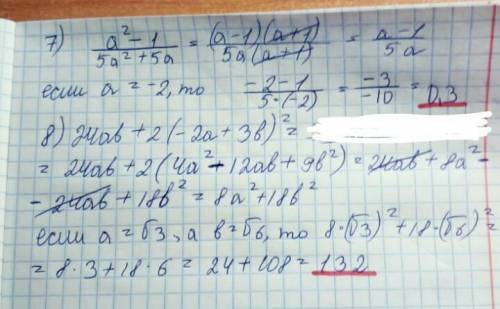 7) (a² - 1)/(5a² + 5a) = ((a-1)(a+1))/(5a(a+1)) = (a-1)/(5a)
если a = -2, то (-2-1)/(5·(-2)) = (-3)/(-10) = 0,3
8) 24ab + 2(-2a + 3b)² =
= 24ab + 2(4a² - 12ab + 9b²) = 24ab + 8a² -
- 24ab + 18b² = 8a² + 18b²
если a = √3, а b = √6, то 8·(√3)² + 18·(√6)² =
= 8·3 + 18·6 = 24 + 108 = 132